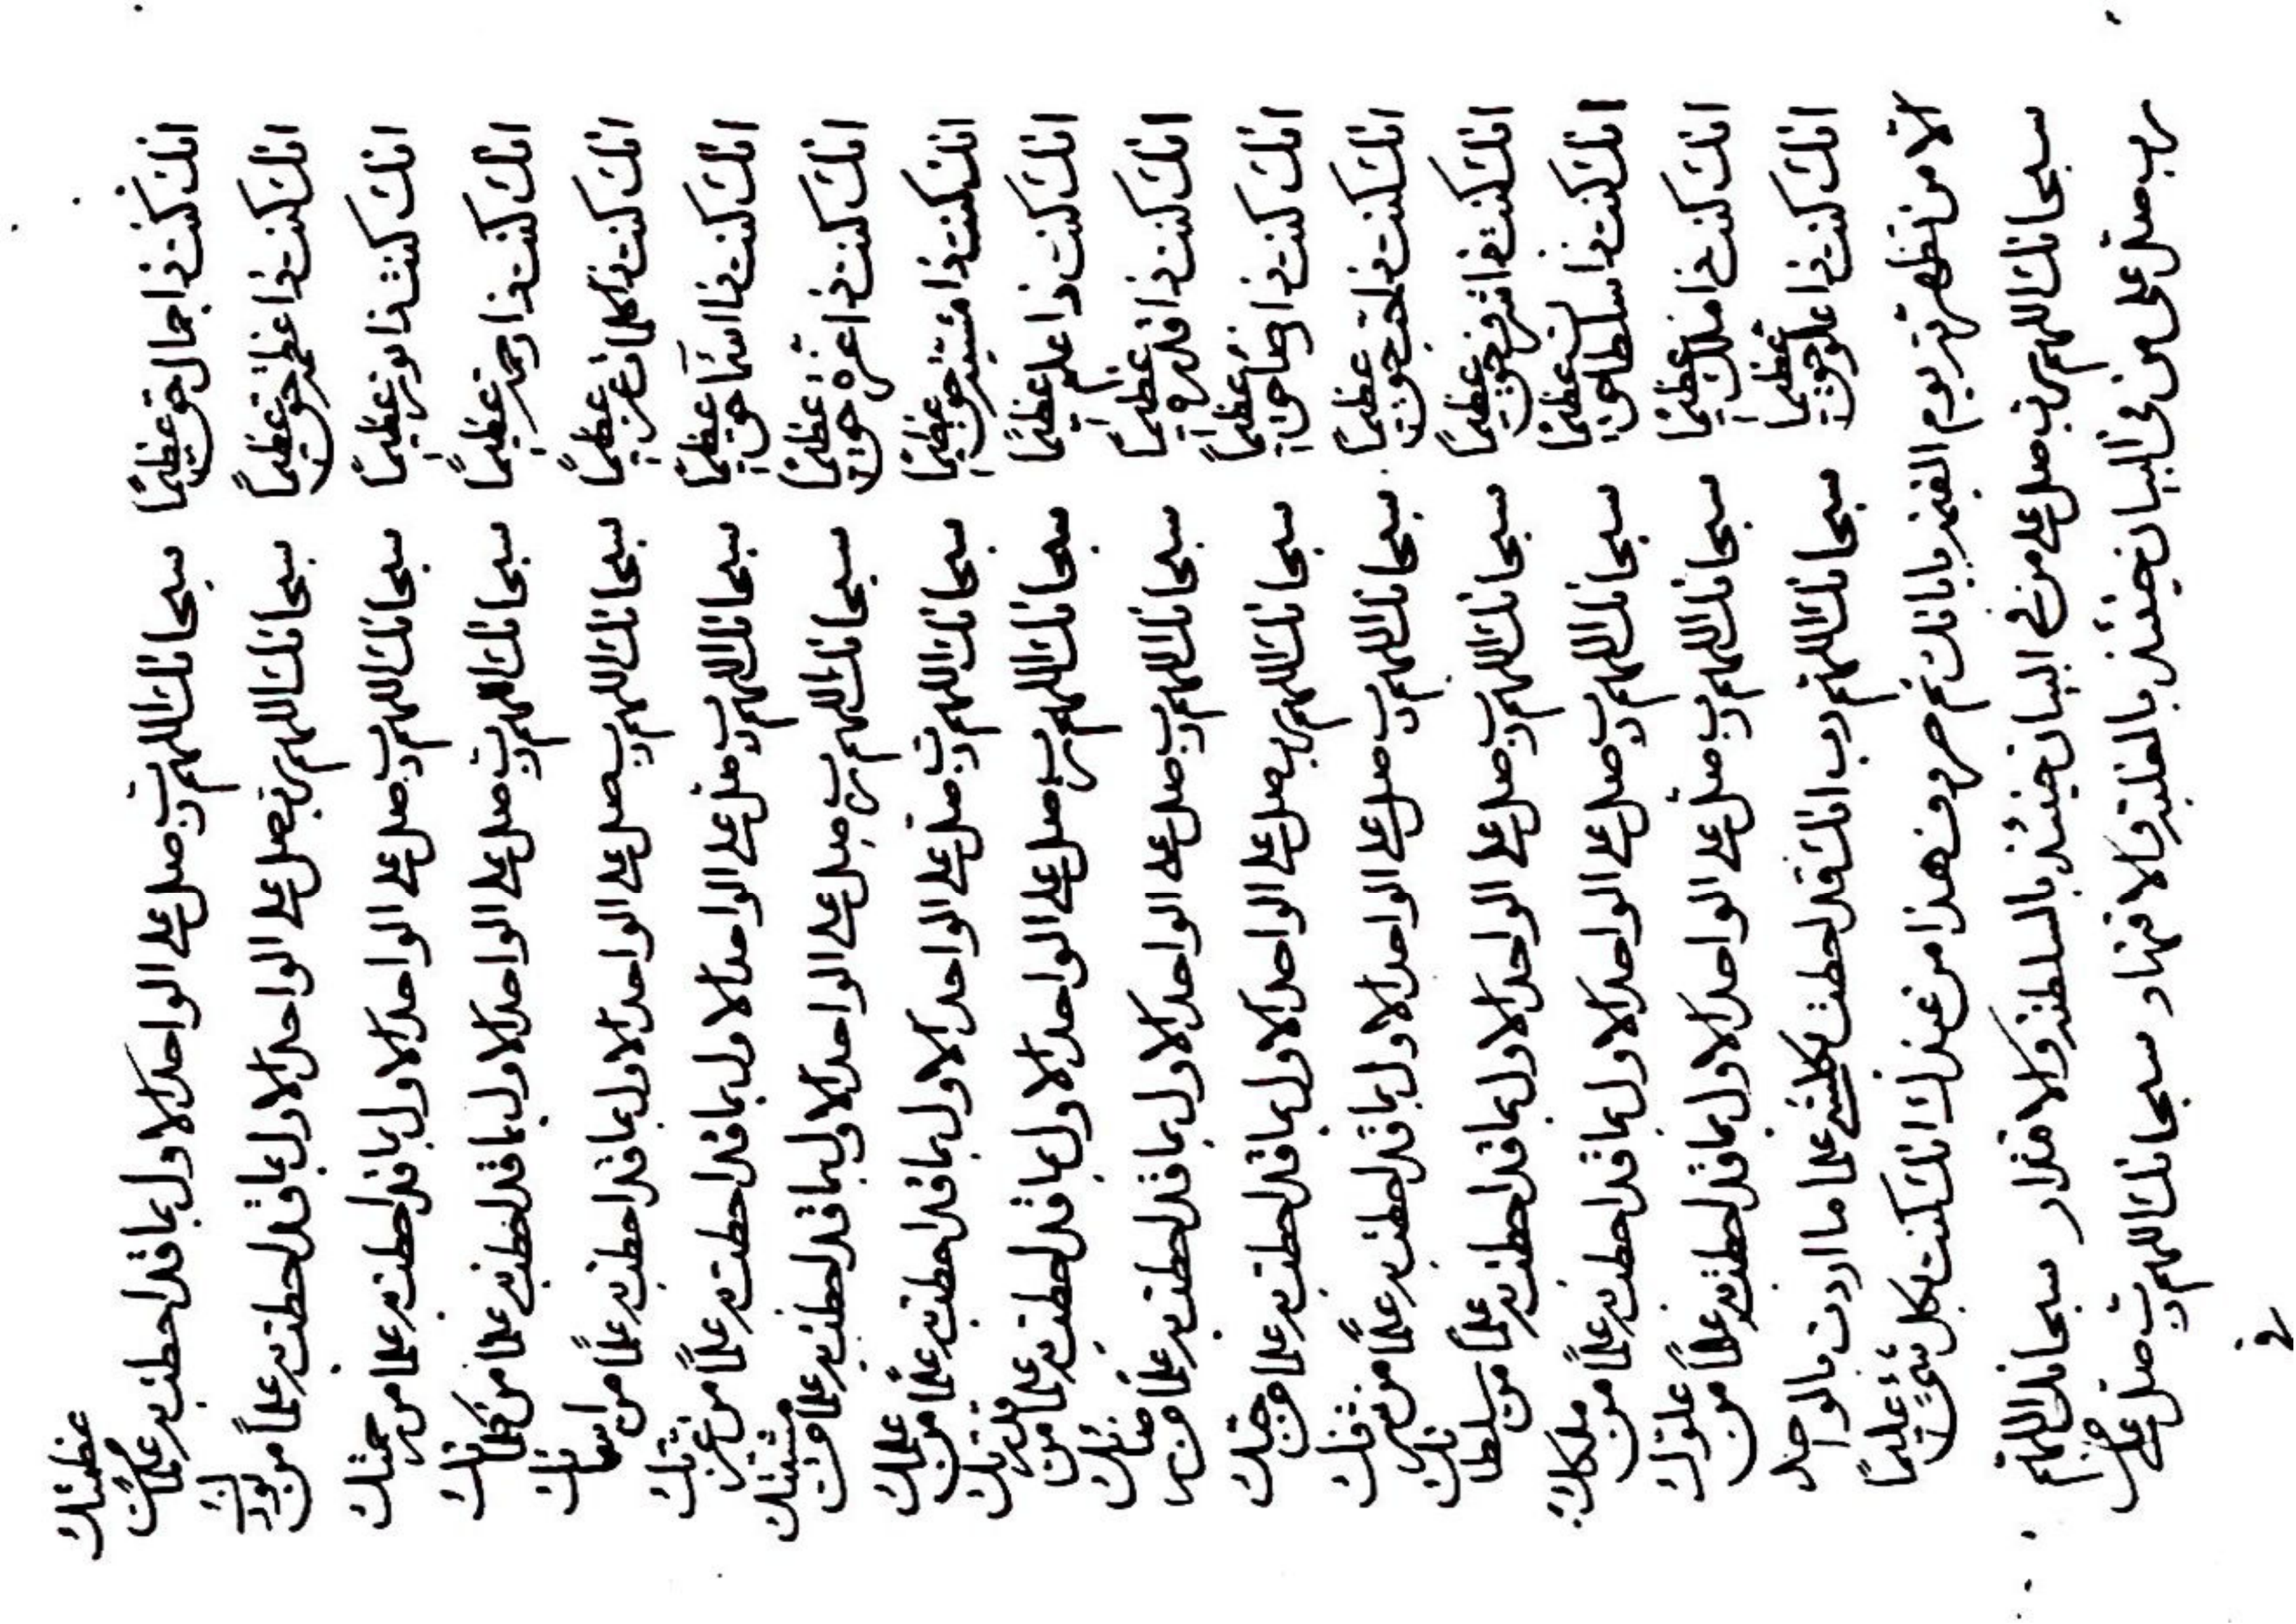 انك كنت ذا جمال حق عظيما سبحانك اللهم رب صل على الواحد الاول بما قد احطت به علما من عظمتك
انك كنت ذا عظمة حق عظيما سبحانك اللهم رب صل على الواحد الاول بما قد احطت به علما من نورك
انك كنت ذا نور عظيما سبحانك اللهم رب صل على الواحد الاول بما قد احطت به علما من رحمتك
انك كنت ذا رحمة عظيما سبحانك اللهم رب صل على الواحد الاول بما قد احطت به علما من كلماتك
انك كنت ذا كلمات عظيما سبحانك اللهم رب صل على الواحد الاول بما قد احطت به علما من اسمائك
انك كنت ذا اسماء حق عظيما سبحانك اللهم رب صل على الواحد الاول بما قد احطت به علما من عزتك
انك كنت ذا عزة حق عظيما سبحانك اللهم رب صل على الواحد الاول بما قد احطت به علما من مشيتك
انك كنت ذا مشية حق عظيما سبحانك اللهم رب صل على الواحد الاول بما قد احطت به علما من علمك
انك كنت ذا علم عظيما سبحانك اللهم رب صل على الواحد الاول بما قد احطت به علما من قدرتك
انك كنت ذا قدرة عظيما سبحانك اللهم رب صل على الواحد الاول بما قد احطت به علما من رضائك
انك كنت ذا رضاء حق عظيما سبحانك اللهم رب صل على الواحد الاول بما قد احطت به علما من
انك كنت ذا حق عظيما سبحانك اللهم رب صل على الواحد الاول بما قد احطت به علما من شرفك
انك كنت ذا شرف حق عظيما سبحانك اللهم رب صل على الواحد الاول بما قد احطت به علما من سلطانك
انك كنت ذا سلطان حق عظيما سبحانك اللهم رب صل على الواحد الاول بما قد احطت به علما من ملكك
انك كنت ذا ملك عظيما سبحانك اللهم رب صل على الواحد الاول بما قد احطت به علما من علوك
انك كنت ذا علو حق عظيما سبحانك اللهم رب انك قد احطت بكلشئ علما ما اردت بالواحد
الا من تظهرنه يوم القيمة باياتك ثم حروف هذا من عندك انك كنت بكل شئ عليما
سبحانك اللهم رب صل على من في البيان حينئذ بالسلطنة والاقتدار سبحانك اللهم
رب صل على من في البيان حينئذ بالغلبة والاقتهار سبحانك اللهم رب صل على من
في